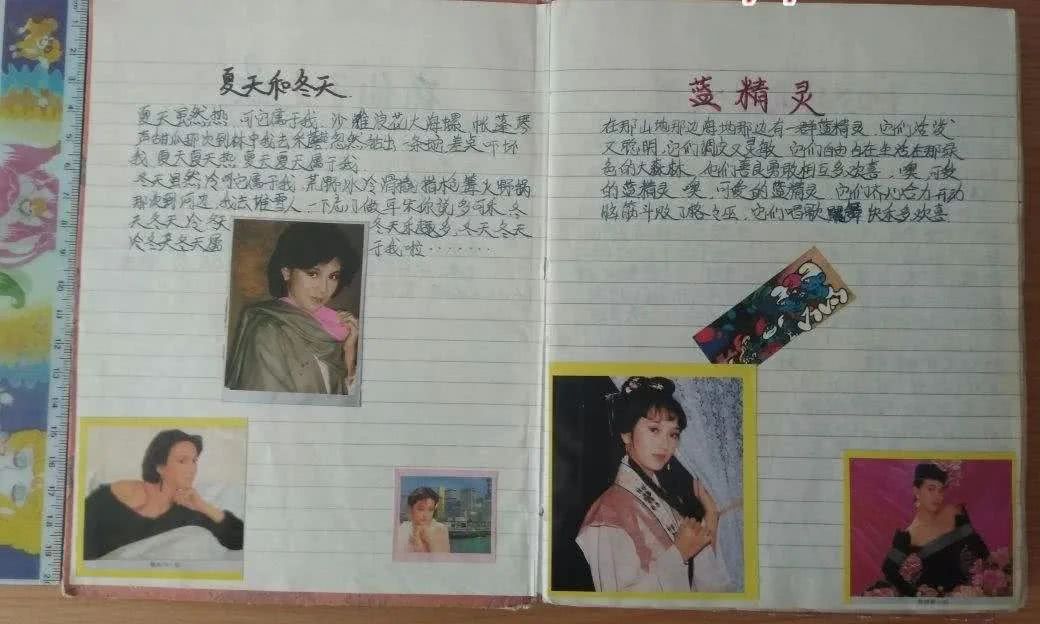 夏天和冬天
夏天虽然热，可它属于我，沙滩浪花大海螺，帐篷琴
声甜瓜那次到林中我去采蘑菇忽然钻出一条蛇差点吓坏
我，夏天夏天热夏天夏天属于我。
冬天虽然冷可它属于我，荒野冰冷滑梯猎枪篝火野锅
那次到河边我去堆雪人，一下 做耳朵你说多可乐，冬
天冬天冷冬天 冬天乐趣多，冬天冬天
冷冬天冬天属 于我啦········
蓝精灵
在那山地那边海地那边有一群蓝精灵，它们活泼
又聪明，它们调皮又灵敏，它们自由自在生活在那绿
色的大森林，他们善良勇敢相互多欢喜，噢，可爱
的蓝精灵，噢，可爱的蓝精灵，它们齐心合力开动
脑筋斗败了格格巫，它们唱歌跳舞快乐多欢喜